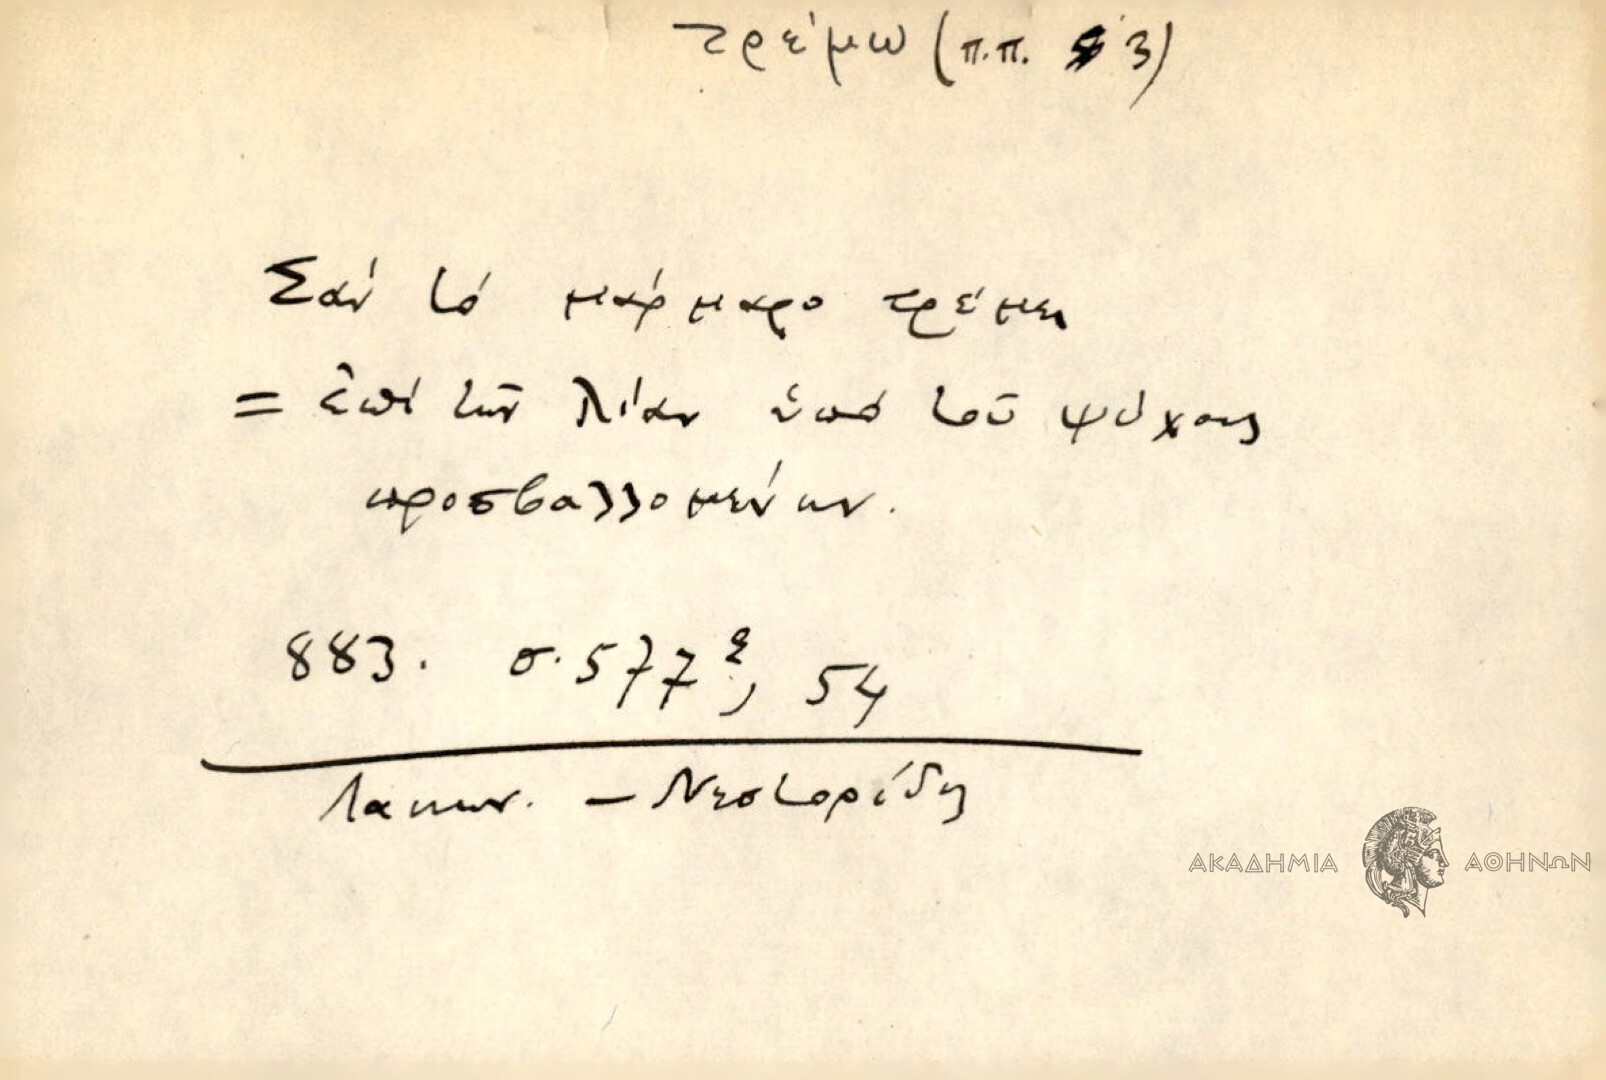 τρέμω (π.π. 3)
Σάν τό μάρμαρο τρέμει
= ἐπί τῶν λίαν ὑπό τοῦ ψύχους
προσβαλλομένων.
883. σ. 577, 54
Λακων. – Νεστορίδης
ΑΚΑΔΗΜΙΑ ΑΘΗΝΩΝ